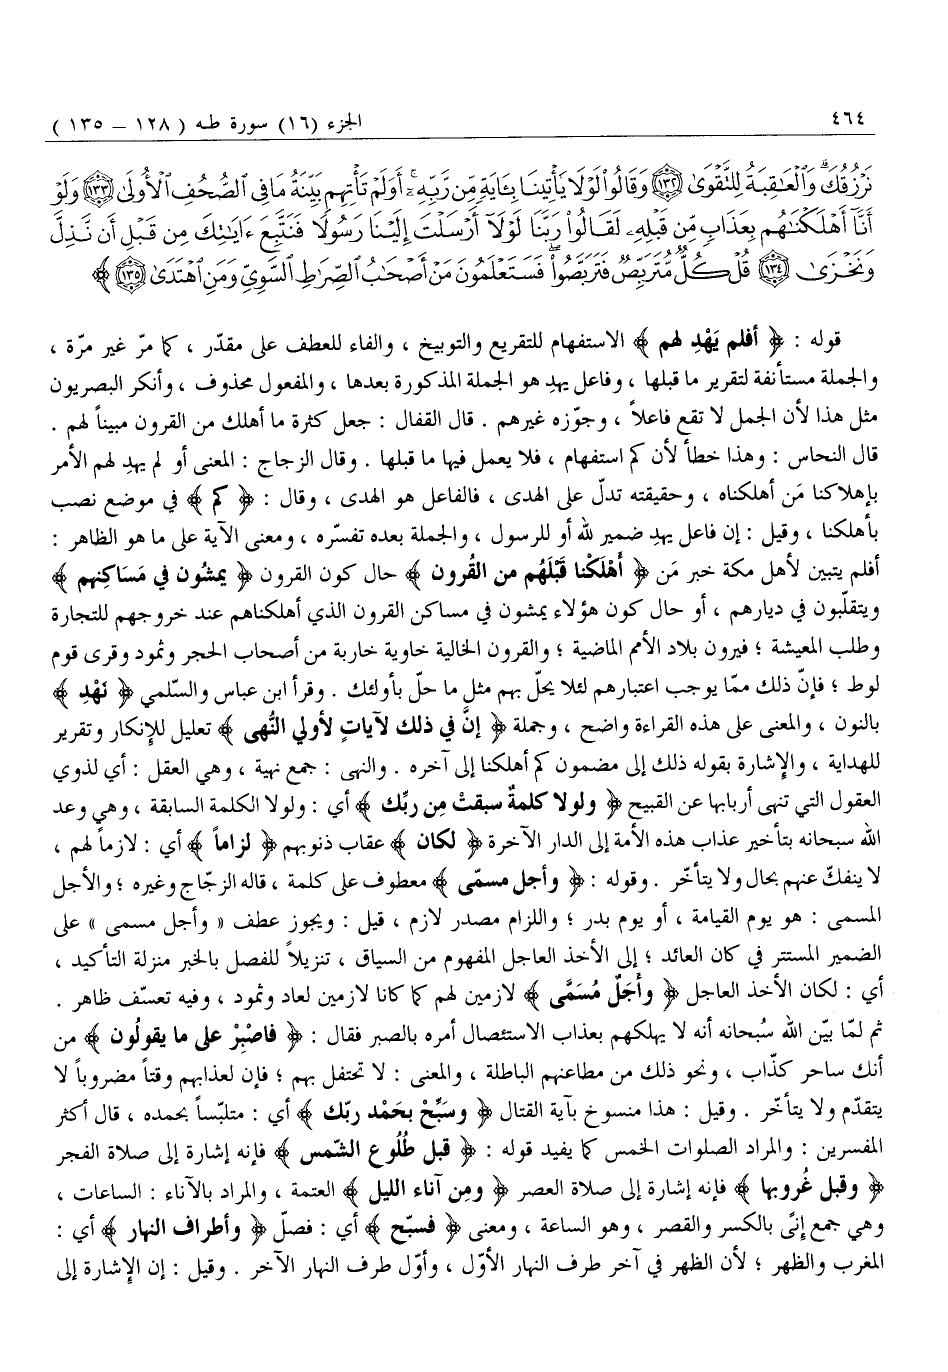 ٤٦٤ الجزء (١٦) سورة طه ( ١٢٨ – ١٣٥ )
نَرْزُقُكَ وَالْعَاقِبَةُ لِلتَّقْوَىٰ ﴿١٣٢﴾ وَقَالُوا لَوْلَا يَأْتِينَا بِآيَةٍ مِّن رَّبِّهِ أَوَلَمْ تَأْتِهِم بَيِّنَةُ مَا فِي الصُّحُفِ الْأُولَىٰ ﴿١٣٣﴾ وَلَوْ
أَنَّا أَهْلَكْنَاهُم بِعَذَابٍ مِّن قَبْلِهِ لَقَالُوا رَبَّنَا لَوْلَا أَرْسَلْتَ إِلَيْنَا رَسُولًا فَنَتَّبِعَ آيَاتِكَ مِن قَبْلِ أَن نَّذِلَّ
وَنَخْزَىٰ ﴿١٣٤﴾ قُلْ كُلٌّ مُّتَرَبِّصٌ فَتَرَبَّصُوا فَسَتَعْلَمُونَ مَنْ أَصْحَابُ الصِّرَاطِ السَّوِيِّ وَمَنِ اهْتَدَىٰ ﴿١٣٥﴾ ﴾
قوله : ﴿ أفلم يَهْدِ لهم ﴾ الاستفهام للتقريع والتوبيخ ، والفاء للعطف على مقدّر ، كما مرّ غير مرّة ،
والجملة مستأنفة لتقرير ما قبلها ، وفاعل يهدِ هو الجملة المذكورة بعدها ، والمفعول محذوف ، وأنكر البصريون
مثل هذا لأن الجمل لا تقع فاعلاً ، وجوّزه غيرهم . قال القفال : جعل كثرة ما أهلك من القرون مبيناً لهم .
قال النحاس : وهذا خطأ لأن كم استفهام ، فلا يعمل فيها ما قبلها . وقال الزجاج : المعنى أو لم يهدِ لهم الأمر
بإهلاكنا مَن أهلكناه ، وحقيقته تدلّ على الهدى ، فالفاعل هو الهدى ، وقال : ﴿ كم ﴾ في موضع نصب
بأهلكنا ، وقيل : إن فاعل يهدِ ضمير لله أو للرسول ، والجملة بعده تفسّره ، ومعنى الآية على ما هو الظاهر :
أفلم يتبين لأهل مكة خبر مَن ﴿ أَهْلَكْنا قَبْلَهُم من القُرون ﴾ حال كون القرون ﴿ يمشُون في مَسَاكِنهم ﴾
ويتقلّبون في ديارهم ، أو حال كون هؤلاء يمشون في مساكن القرون الذي أهلكناهم عند خروجهم للتجارة
وطلب المعيشة ؛ فيرون بلاد الأمم الماضية ؛ والقرون الخالية خاوية خاربة من أصحاب الحجر وثمود وقرى قوم
لوط ؛ فإنّ ذلك ممّا يوجب اعتبارهم لئلا يحلّ بهم مثل ما حلّ بأولئك . وقرأ ابن عباس والسّلمي ﴿ نَهْدِ ﴾
بالنون ، والمعنى على هذه القراءة واضح ، وجملة ﴿ إنَّ في ذلك لآياتٍ لأولي النُّهى ﴾ تعليل للإنكار وتقرير
للهداية ، والإشارة بقوله ذلك إلى مضمون كم أهلكنا إلى آخره . والنهى : جمع نهية ، وهي العقل : أي لذوي
العقول التي تنهى أربابها عن القبيح ﴿ ولولا كلمةٌ سبقتْ مِن ربِّك ﴾ أي : ولولا الكلمة السابقة ، وهي وعد
الله سبحانه بتأخير عذاب هذه الأمة إلى الدار الآخرة ﴿ لكان ﴾ عقاب ذنوبهم ﴿ لزاماً ﴾ أي : لازماً لهم ،
لا ينفكّ عنهم بحال ولا يتأخّر . وقوله : ﴿ وأجل مسمّى ﴾ معطوف على كلمة ، قاله الزجّاج وغيره ؛ والأجل
المسمى : هو يوم القيامة ، أو يوم بدر ؛ واللزام مصدر لازم ، قيل : ويجوز عطف « وأجل مسمى » على
الضمير المستتر في كان العائد ؛ إلى الأخذ العاجل المفهوم من السياق ، تنزيلاً للفصل بالخبر منزلة التأكيد ،
أي : لكان الأخذ العاجل ﴿ وأَجَلٌ مُسَمَّى ﴾ لازمين لهم كما كانا لازمين لعاد وثمود ، وفيه تعسّف ظاهر .
ثم لمّا بيّن الله سُبحانه أنه لا يهلكهم بعذاب الاستئصال أمره بالصبر فقال : ﴿ فاصْبِرْ على ما يقولُون ﴾ من
أنك ساحر كذّاب ، ونحو ذلك من مطاعنهم الباطلة ، والمعنى : لا تحتفل بهم ؛ فإن لعذابهم وقتاً مضروباً لا
يتقدّم ولا يتأخّر . وقيل : هذا منسوخ بآية القتال ﴿ وسَبِّحْ بحَمْد ربّك ﴾ أي : متلبّساً بحمده ، قال أكثر
المفسرين : والمراد الصلوات الخمس كما يفيد قوله : ﴿ قبل طُلُوع الشّمس ﴾ فإنه إشارة إلى صلاة الفجر
﴿ وقبل غُروبها ﴾ فإنه إشارة إلى صلاة العصر ﴿ ومِن آناء الليل ﴾ العتمة ، والمراد بالآناء : الساعات ،
وهي جمع إنىً بالكسر والقصر ، وهو الساعة ، ومعنى ﴿ فسبّح ﴾ أي : فصلّ ﴿ وأطراف النهار ﴾ أي :
المغرب والظهر ؛ لأن الظهر في آخر طرف النهار الأوّل ، وأوّل طرف النهار الآخر . وقيل : إن الإشارة إلى